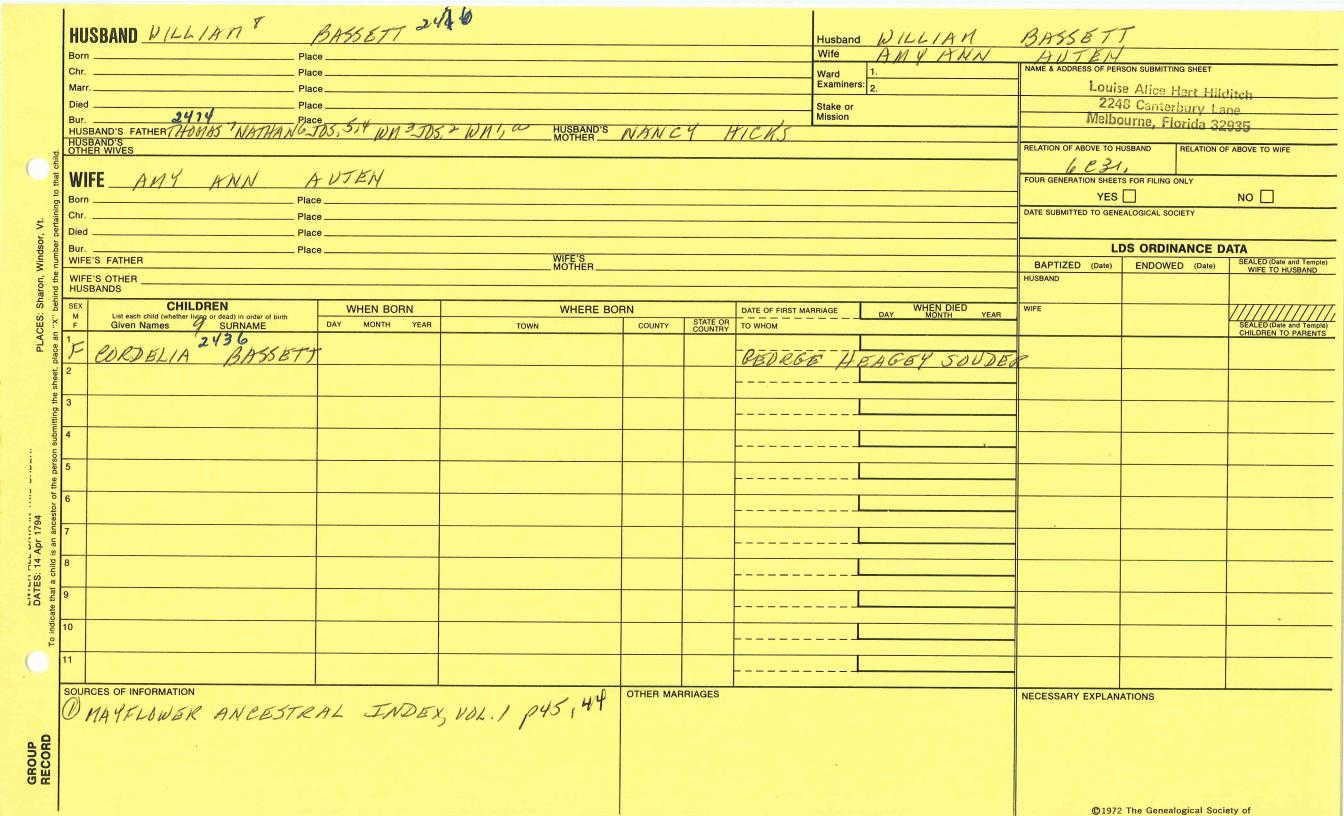 HUSBAND WILLIAM 8 BASSETT
Born Place
Chr. Place
Marr. Place
Died Place
Bur. Place
2474
HUSBAND'S FATHER THOMAS 7 NATHAN 6 JOS, 5,4 WM 3 JOS 2 WM 1, HUSBAND'S MOTHER NANCY HICKS
HUSBAND'S OTHER WIVES
WIFE AMY ANN AUTEN
Born Place
Chr. Place
Died Place
Bur. Place
WIFE'S FATHER WIFE'S MOTHER
WIFE'S OTHER HUSBANDS
Husband WILLIAM BASSETT
Wife AMY ANN AUTEN
Ward Examiners: 1.
2.
Stake or Mission
NAME & ADDRESS OF PERSON SUBMITTING SHEET
Louise Alice Hart Hilditch
2248 Canterbury Lane
Melbourne, Florida 32935
RELATION OF ABOVE TO HUSBAND RELATION OF ABOVE TO WIFE
6C3r.
FOUR GENERATION SHEETS FOR FILING ONLY
YES NO
DATE SUBMITTED TO GENEALOGICAL SOCIETY
LDS ORDINANCE DATA
BAPTIZED (Date) ENDOWED (Date) SEALED (Date and Temple) WIFE TO HUSBAND
HUSBAND
WIFE
SEALED (Date and Temple) CHILDREN TO PARENTS
SEX M F
CHILDREN
List each child (whether living or dead) in order of birth
Given Names 9 SURNAME
WHEN BORN
DAY MONTH YEAR
WHERE BORN
TOWN COUNTY STATE OR COUNTRY
DATE OF FIRST MARRIAGE
TO WHOM
WHEN DIED
DAY MONTH YEAR
2436
1 F CORDELIA BASSETT GEORGE HEAGEY SOUDER
2
3
4
5
6
7
8
9
10
11
SOURCES OF INFORMATION
① MAYFLOWER ANCESTRAL INDEX, VOL. 1 p45, 44
OTHER MARRIAGES
NECESSARY EXPLANATIONS
©1972 The Genealogical Society of
PLACES: Sharon, Windsor, Vt.
DATES: 14 Apr 1794
To indicate that a child is an ancestor of the person submitting the sheet, place an "X" behind the number pertaining to that child.
GROUP RECORD